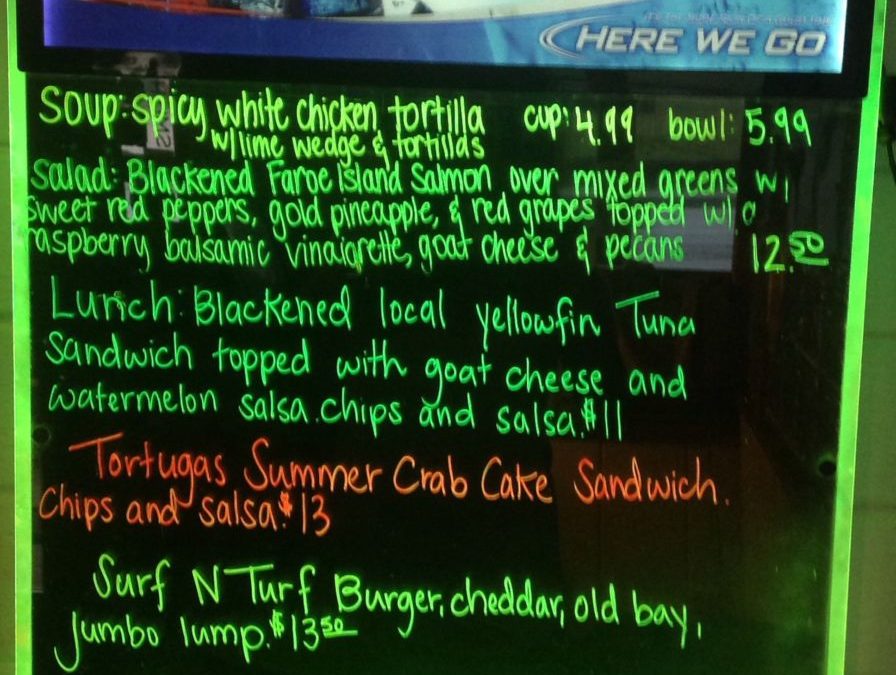 HERE WE GO
Soup: spicy white chicken tortilla cup: 4.99 bowl: 5.99
w/lime wedge & tortillas
Salad: Blackened Faroe Island Salmon over mixed greens w/
sweet red peppers, gold pineapple, & red grapes topped w/ a
raspberry balsamic vinaigrette, goat cheese & pecans 12.50
Lunch: Blackened local yellowfin Tuna
Sandwich topped with goat cheese and
watermelon salsa. chips and salsa. $11
Tortugas Summer Crab Cake Sandwich.
Chips and salsa. $13
Surf N Turf Burger, cheddar, old bay,
jumbo lump. $13.50